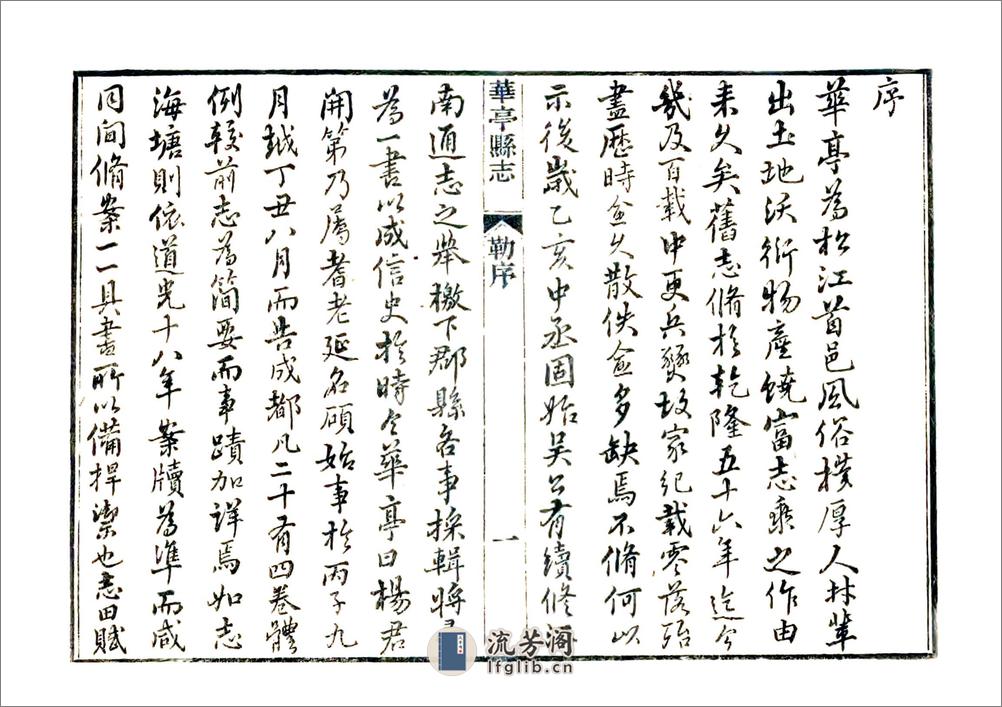 序
華亭為松江首邑風俗樸厚人材輩
出土地沃衍物產饒富志乘之作由
来久矣舊志脩於乾隆五十六年迄今
幾及百載中更兵燹故家紀載零落殆
盡歷時益久散佚益多缺焉不脩何以
示後歲乙亥中丞固始吳公有續修
華亭縣志
勒序
一
南通志之舉檄下郡縣各事採輯將
為一書以成信史於時令華亭曰楊君
開第乃屬耆老延名碩始事於丙子九
月越丁丑八月而告成都凡二十有四卷體
例較前志為簡要而事蹟加詳焉如志
海塘則依道光十八年案牘為準而咸
同間脩案一一具書所以備捍禦也志田賦
流芳阁
lfglib.cn